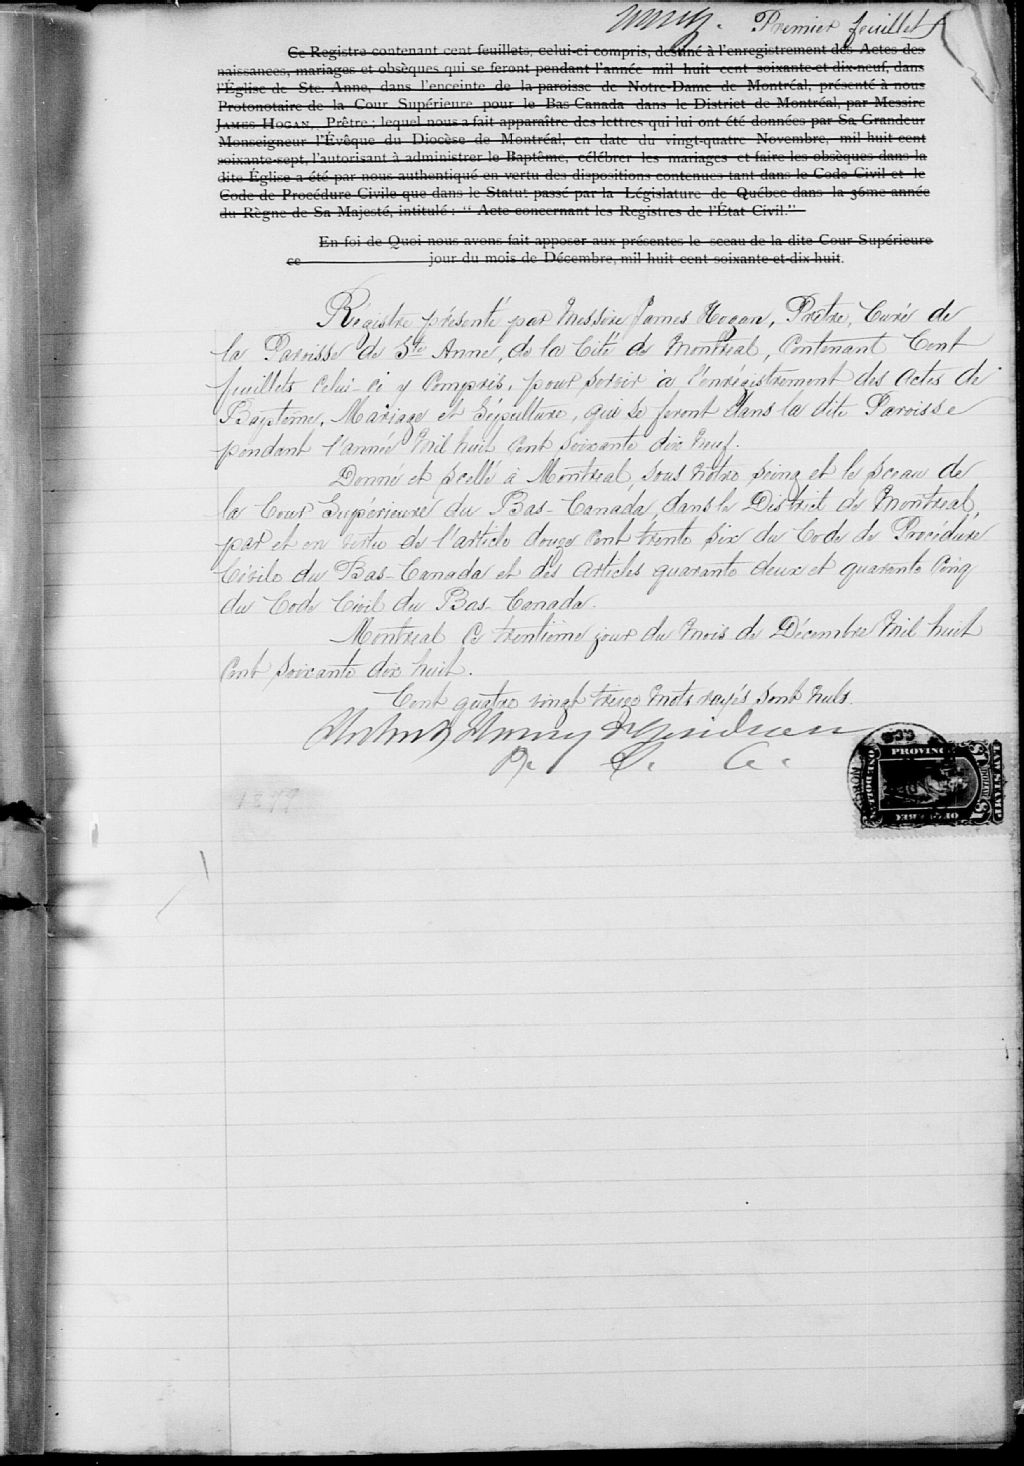 Premier feuillet
Ce Registre contenant cent feuillets, celui-ci compris, destiné à l'enregistrement des Actes des
naissances, mariages et obsèques qui se feront pendant l'année mil huit cent soixante-et-dix-neuf, dans
l'Église de Ste. Anne, dans l'enceinte de la paroisse de Notre-Dame de Montréal, présenté à nous
Protonotaire de la Cour Supérieure pour le Bas-Canada dans le District de Montréal, par Messire
JAMES HOGAN, Prêtre; lequel nous a fait apparaître des lettres qui lui ont été données par Sa Grandeur
Monseigneur l'Évêque du Diocèse de Montréal, en date du vingt-quatre Novembre, mil huit cent
soixante-sept, l'autorisant à administrer le Baptême, célébrer les mariages et faire les obsèques dans la
dite Église a été par nous authentiqué en vertu des dispositions contenues tant dans le Code Civil et le
Code de Procédure Civile que dans le Statut passé par la Législature de Québec dans la 36me année
du Règne de Sa Majesté, intitulé: "Acte concernant les Registres de l'État Civil."
En foi de Quoi nous avons fait apposer aux présentes le sceau de la dite Cour Supérieure
ce jour du mois de Décembre, mil huit cent soixante-et-dix huit.
Régistre présenté par Messire James Hogan, Prêtre, Curé de
la Paroisse de Ste Anne, de la Cité de Montréal, Contenant Cent
feuillets celui-ci y Compris, pour servir à l'enrégistrement des actes de
Baptême, Mariage et Sépulture, qui se feront dans la dite Paroisse
pendant l'année Mil huit Cent soixante dix Neuf.
Donné et scellé à Montréal, sous Notre seing et le sceau de
la Cour Supérieure du Bas-Canada, dans le District de Montréal,
par et en vertu de l'article douze Cent trente six du Code de Procédure
Civile du Bas-Canada et des articles quarante deux et quarante Cinq
du Code Civil du Bas-Canada.
Montréal Ce trentième jour du Mois de Décembre Mil huit
Cent soixante dix huit.
Cent quatre vingt treize Mots rayés sont Nuls.
1879
PROVINCE
OF QUEBEC
LAW STAMP